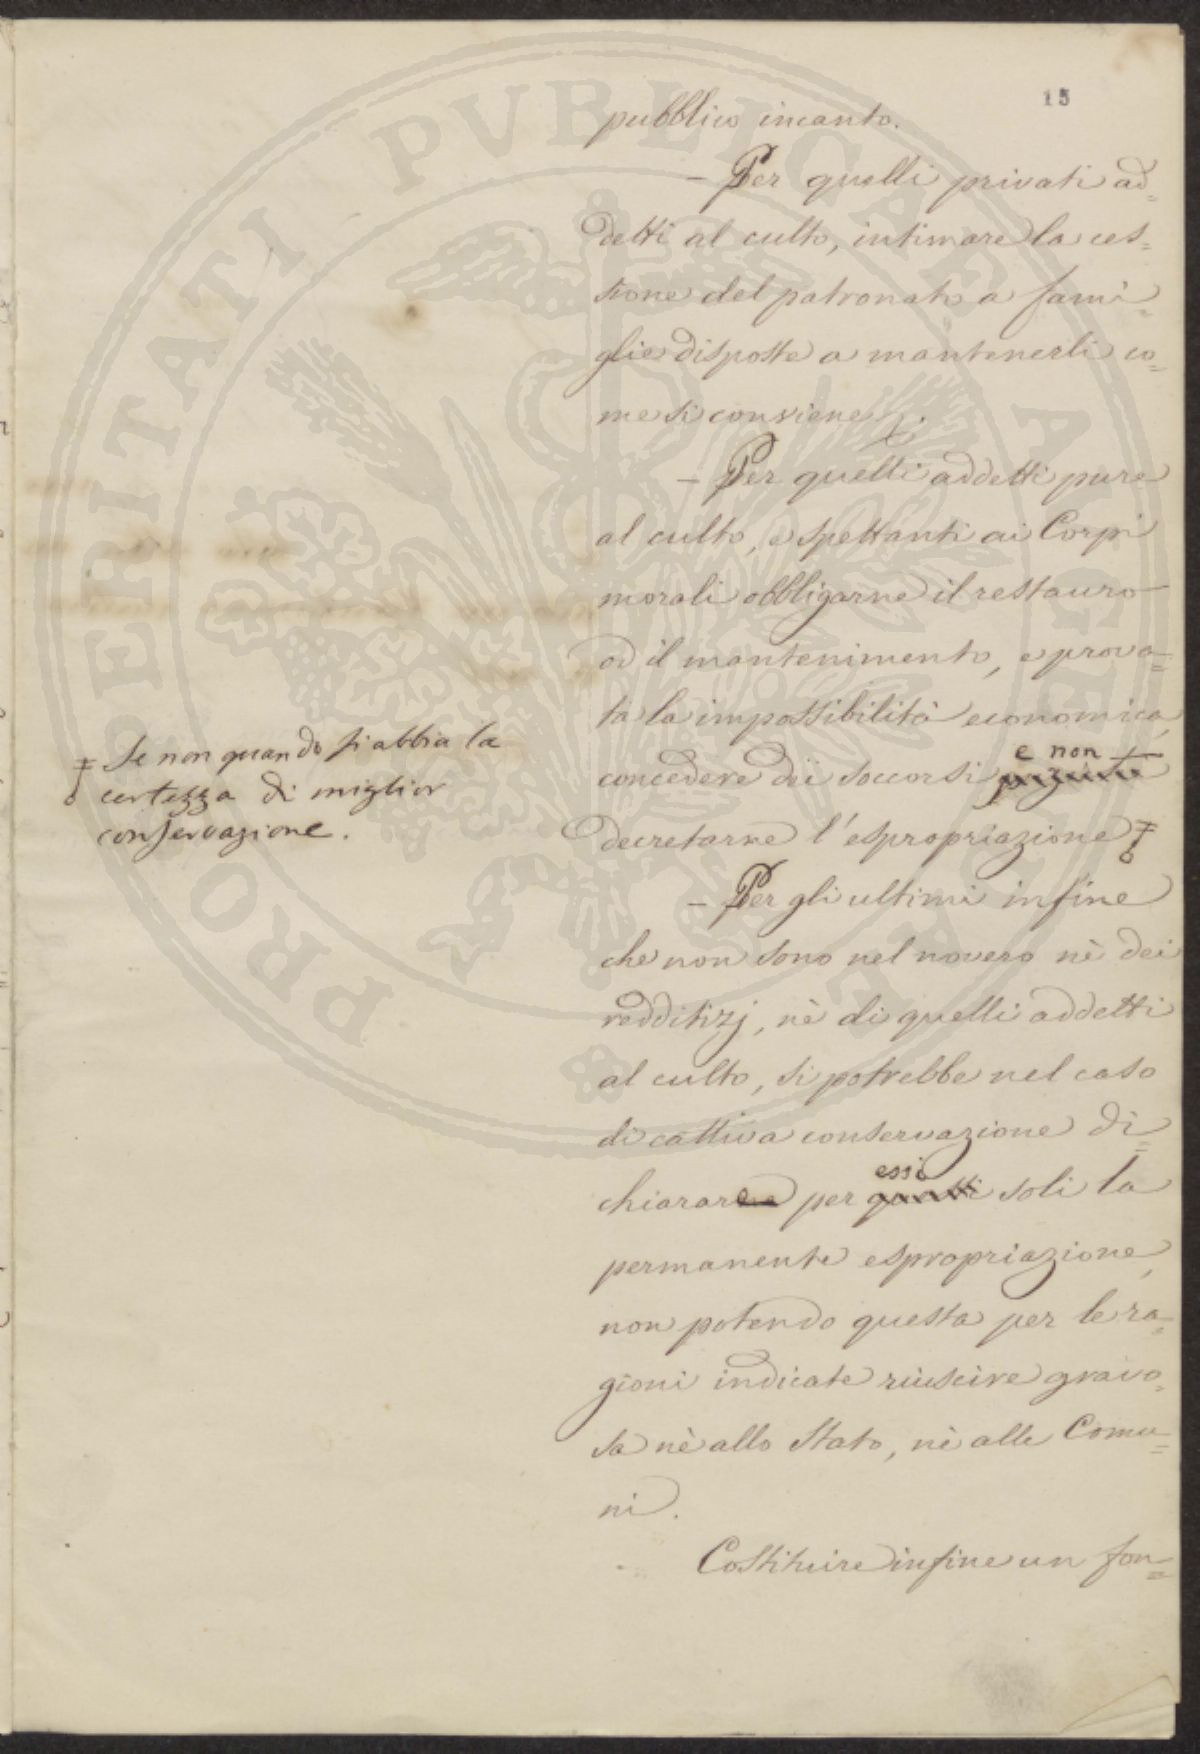 15
pubblico incanto.
– Per quelli privati ad=
detti al culto, intimare la ces=
sione del patronato a fami=
glie disposte a mantenerli co=
me si conviene.
– Per quelli addetti pure
al culto, e spettanti ai Corpi
morali obbligarne il restauro
od il mantenimento, e prova=
ta la impossibilità economica,
e non
concedere dei soccorsi
decretarne l'espropriazione
Se non quando si abbia la
certezza di miglior
conservazione.
– Per gli ultimi infine
che non sono nel novero nè dei
redditizj, nè di quelli addetti
al culto, si potrebbe nel caso
di cattiva conservazione di=
essi
chiarare per questi soli la
permanente espropriazione,
non potendo questa per le ra=
gioni indicate riuscire gravo=
sa nè allo Stato, nè alle Comu=
ni.
Costituire infine un fon=
PROPERITATI PVBLICAE AVGENDAE